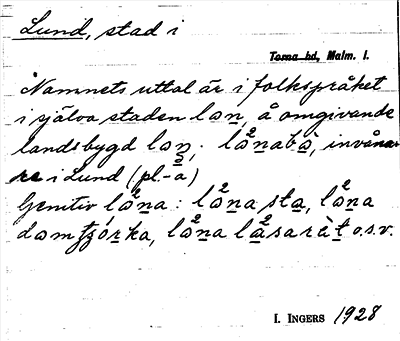 Lund, stad i
Torna hd, Malm. l.
Namnets uttal är i folkspråket
i själva staden lon, å omgivande
landsbygd lon. lo²nabò, invåna-
re i Lund (pl. -a)
Genitiv lo²na: lo²na sta, lo²na
domtjórka, lo²na lä²sarät o.s.v.
I. INGERS 1928